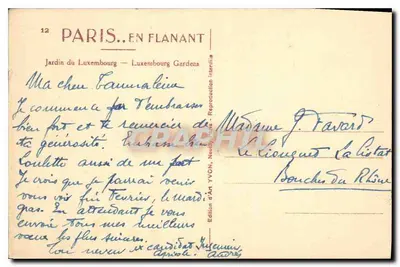 12
PARIS.. EN FLANANT
Jardin du Luxembourg — Luxembourg Gardens
Ma chère
Je commence par t'embrasser
bien fort et te remercier de
ta générosité.
roulotte aussi de me
Je crois que je pourrai venir
vous voir fin Février, le mardi
gras. En attendant je vous
envoie tous mes meilleurs
vœux les plus sincères.
Ton neveu et candidat Ingénieur
Agricole. André
Edition d'Art YVON, Reproduction Interdite
Madame J. Favard
Le Liouquet La Ciotat
Bouches du Rhône